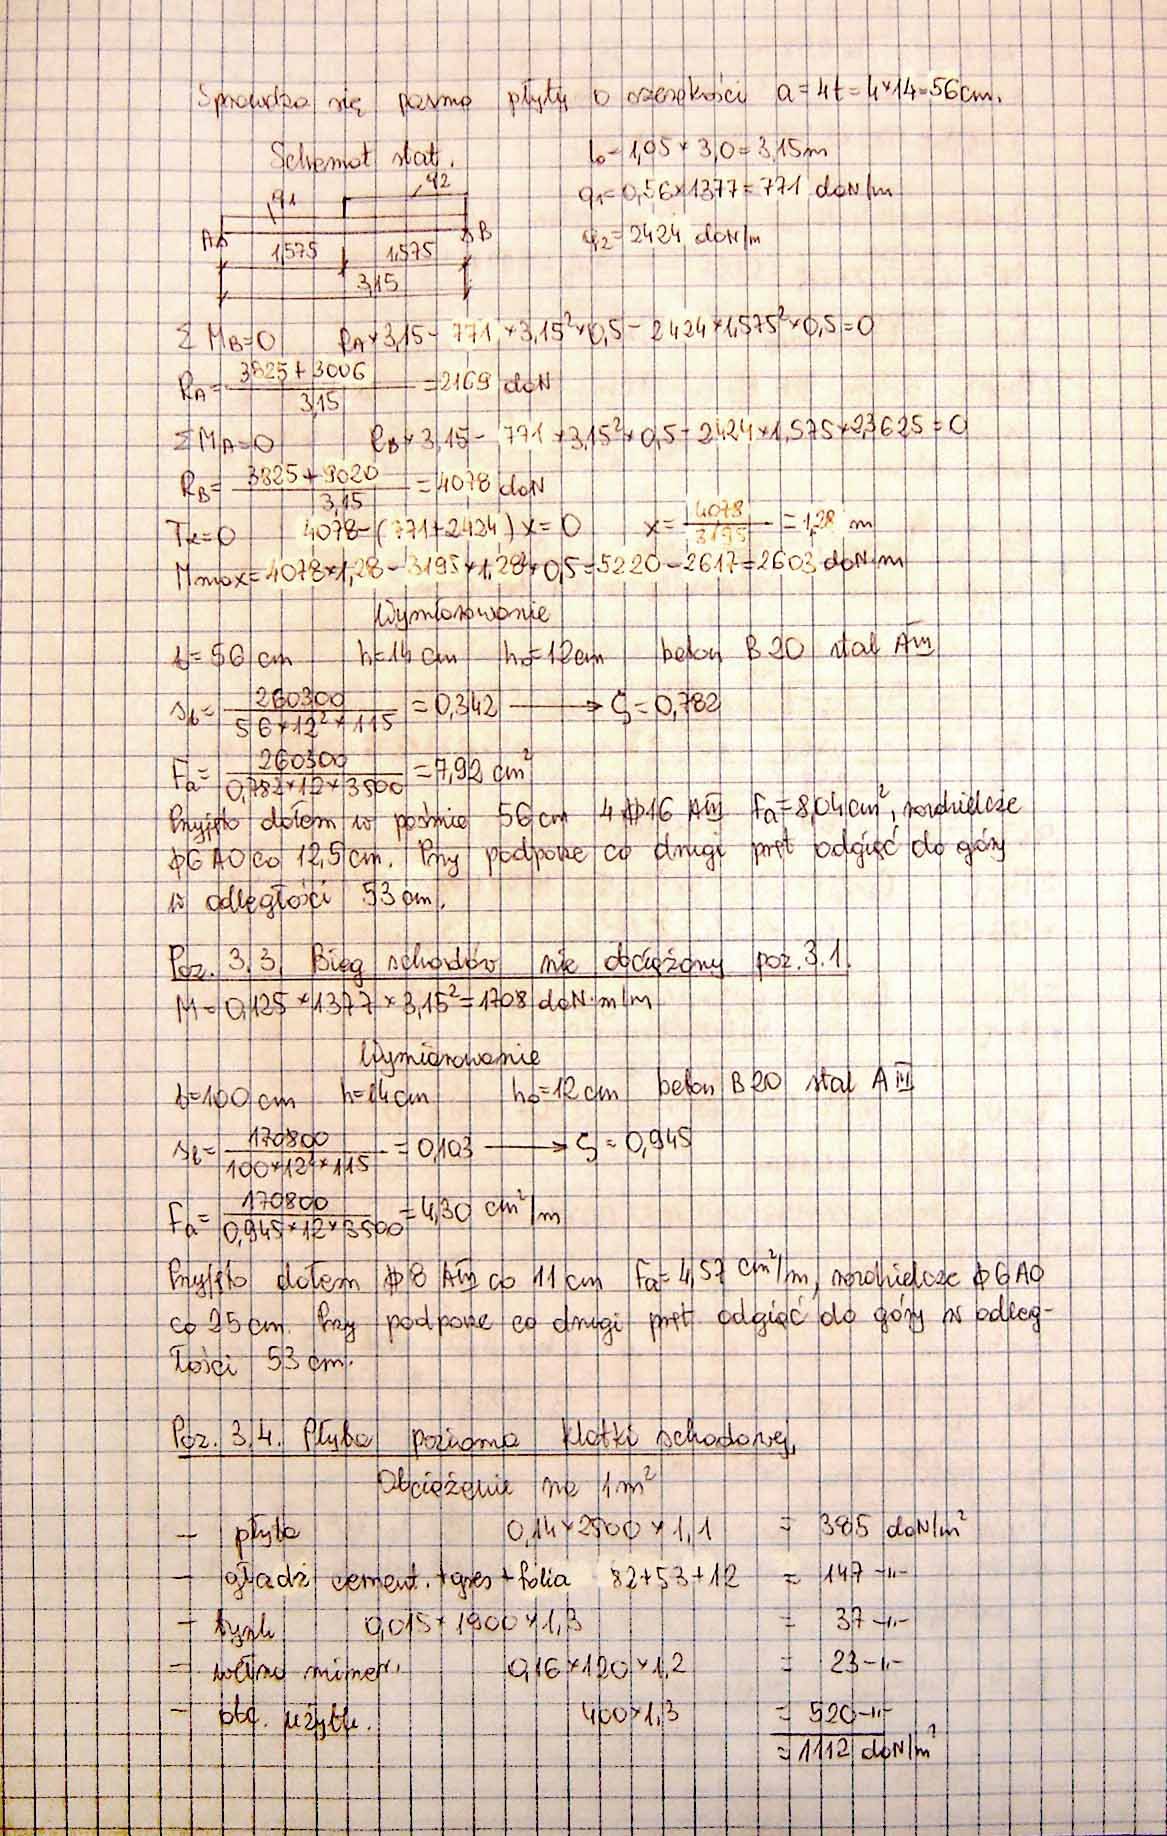 Sprawdza się pasmo płyty o szerokości a=4t=4×14=56cm.
Schemat stat.
lo=1,05×3,0=3,15m
q1 q2
q1=0,56×1377=771 daN/m
A B
q2=2424 daN/m
1,575 1,575
3,15
ΣMB=0 RA×3,15-771×3,15²×0,5-2424×1,575²×0,5=0
RA= 3825+3006 / 3,15 =2169 daN
ΣMA=0 RB×3,15-771×3,15²×0,5-2424×1,575×2,3625=0
RB= 3825+9020 / 3,15 =4078 daN
Tx=0 4078-(771+2424)x=0 x= 4078 / 3195 =1,28 m
Mmax=4078×1,28-3195×1,28²×0,5=5220-2617=2603 daN·m
Wymiarowanie
b=56cm h=14cm ho=12cm beton B20 stal AIII
sb= 260300 / 56×12²×115 =0,342 → ζ=0,782
Fa= 260300 / 0,782×12×3500 =7,92 cm²
Przyjęto dołem w paśmie 56cm 4#16 AIII Fa=8,04cm², rozdzielcze
ϕ6 A0 co 12,5cm. Przy podporze co drugi pręt odgiąć do góry
w odległości 53cm.
Poz. 3.3. Bieg schodów nie obciążony poz. 3.1.
M=0,125×1377×3,15²=1708 daN·m/m
Wymiarowanie
b=100cm h=14cm ho=12cm beton B20 stal AIII
sb= 170800 / 100×12²×115 =0,103 → ζ=0,945
Fa= 170800 / 0,945×12×3500 =4,30 cm²/m
Przyjęto dołem #8 AIII co 11cm Fa=4,57 cm²/m, rozdzielcze ϕ6 A0
co 25cm. Przy podporze co drugi pręt odgiąć do góry w odleg-
łości 53cm.
Poz. 3.4. Płyta pozioma klatki schodowej.
Obciążenie na 1m²
- płyta 0,14×2500×1,1 = 385 daN/m²
- gładź cement.+gres+folia 82+53+12 = 147 -"-
- tynk 0,015×1900×1,3 = 37 -"-
- wełna miner. 0,16×120×1,2 = 23 -"-
- obc. użytk. 400×1,3 = 520 -"-
=1112 daN/m²